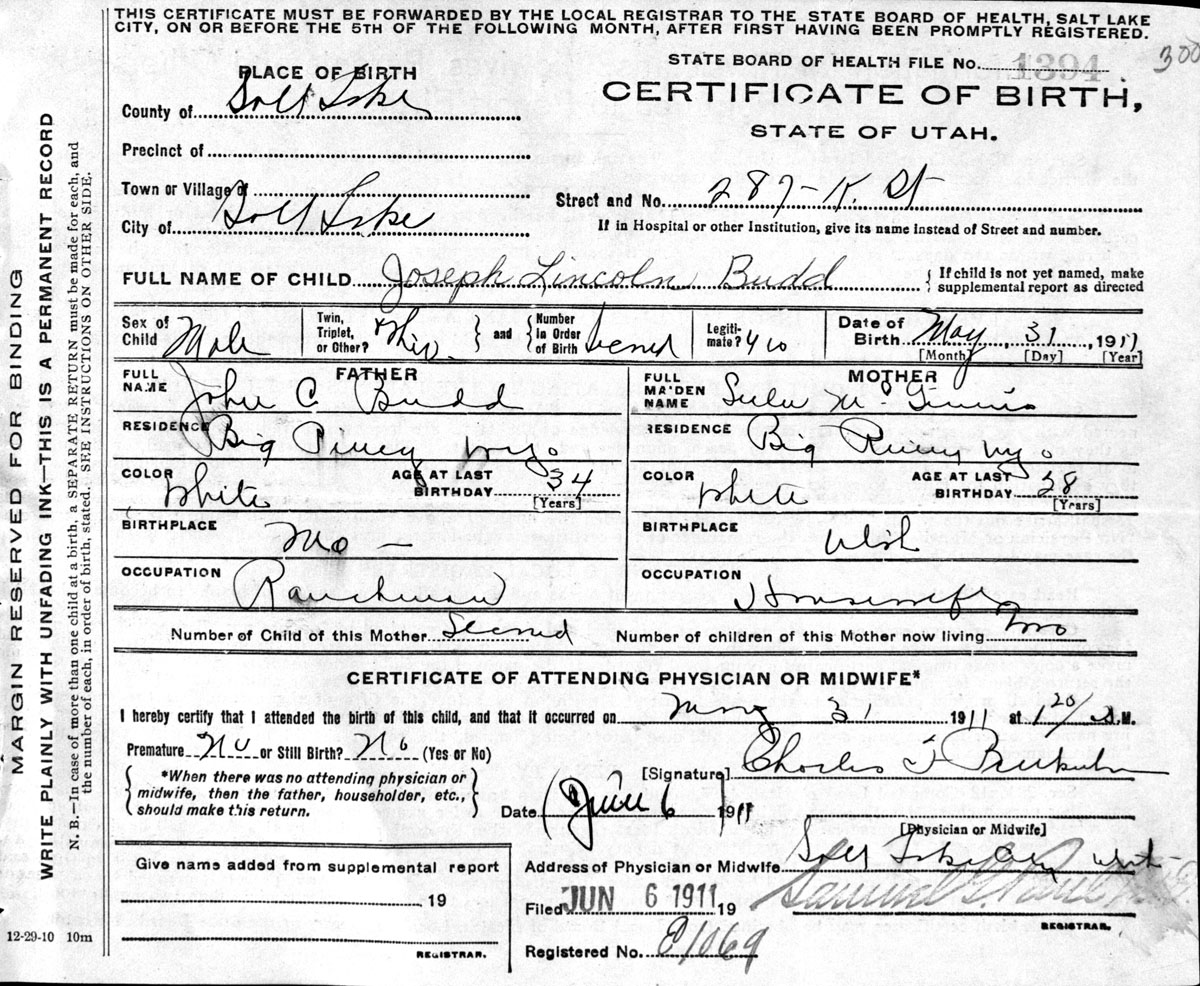 THIS CERTIFICATE MUST BE FORWARDED BY THE LOCAL REGISTRAR TO THE STATE BOARD OF HEALTH, SALT LAKE
CITY, ON OR BEFORE THE 5TH OF THE FOLLOWING MONTH, AFTER FIRST HAVING BEEN PROMPTLY REGISTERED.
STATE BOARD OF HEALTH FILE No. 1394 300
PLACE OF BIRTH
CERTIFICATE OF BIRTH,
STATE OF UTAH.
County of Salt Lake
Precinct of
Town or Village of
Street and No. 287 - K. St
City of Salt Lake
If in Hospital or other Institution, give its name instead of Street and number.
FULL NAME OF CHILD Joseph Lincoln Budd { If child is not yet named, make
supplemental report as directed
Sex of Child Male
Twin, Triplet, or Other? } and { Number in Order of Birth Second
Legitimate?
Date of Birth May 31, 1911
[Month] [Day] [Year]
FATHER
MOTHER
FULL NAME John C Budd
FULL MAIDEN NAME Lulu McGinnis
RESIDENCE Big Piney Wyo
RESIDENCE Big Piney Wyo
COLOR White
AGE AT LAST BIRTHDAY 34
[Years]
COLOR White
AGE AT LAST BIRTHDAY 28
[Years]
BIRTHPLACE Mo -
BIRTHPLACE Utah
OCCUPATION Ranchman
OCCUPATION Housewife
Number of Child of this Mother Second
Number of children of this Mother now living Two
CERTIFICATE OF ATTENDING PHYSICIAN OR MIDWIFE*
I hereby certify that I attended the birth of this child, and that it occurred on May 31 1911 at 1 20/ M.
Premature No or Still Birth? No (Yes or No)
{ *When there was no attending physician or
midwife, then the father, householder, etc.,
should make this return. }
[Signature] Charles F
Date (June 6 1911)
[Physician or Midwife]
Address of Physician or Midwife Salt Lake City Utah
Give name added from supplemental report
19
REGISTRAR.
Filed JUN 6 1911 19
Samuel G. Paul
REGISTRAR.
Registered No. E1069
12-29-10 10m
MARGIN RESERVED FOR BINDING
WRITE PLAINLY WITH UNFADING INK—THIS IS A PERMANENT RECORD
N. B.—In case of more than one child at a birth, a SEPARATE RETURN must be made for each, and
the number of each, in order of birth, stated. SEE INSTRUCTIONS ON OTHER SIDE.